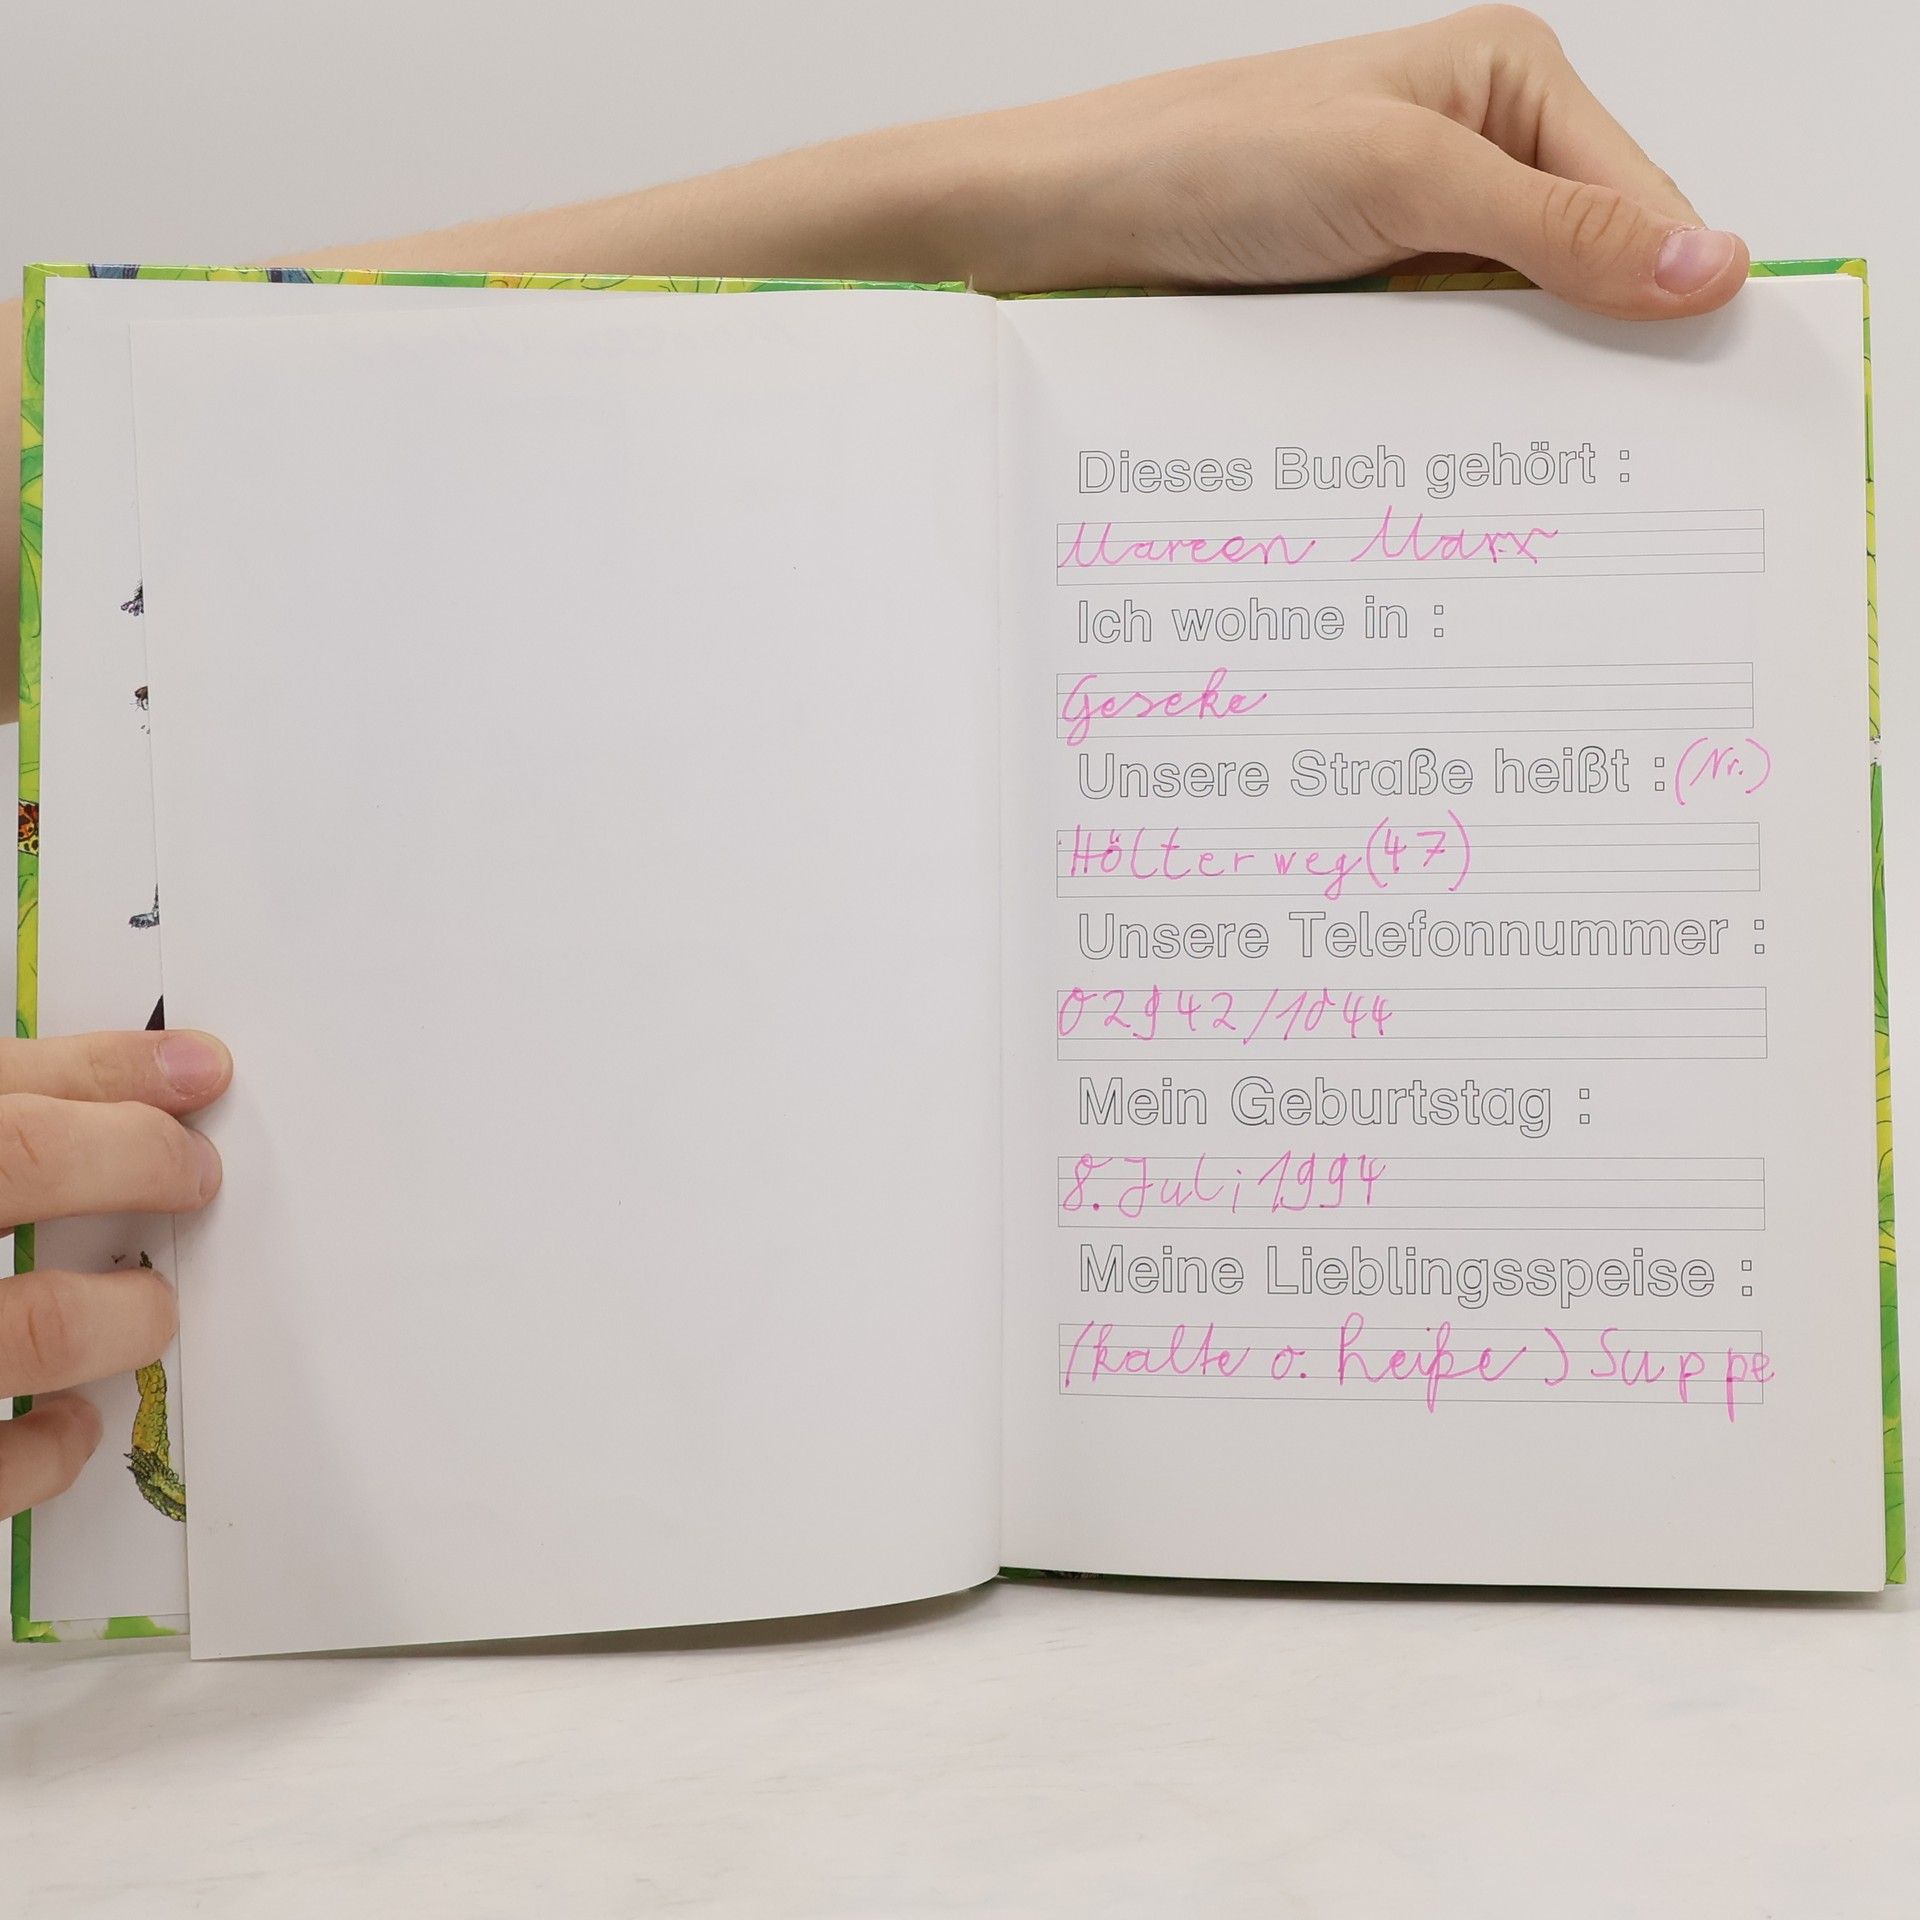 Dieses Buch gehört :
Mareen Marx
Ich wohne in :
Geseke
Unsere Straße heißt : (Nr.)
Hölter weg (47)
Unsere Telefonnummer :
02942/1044
Mein Geburtstag :
8. Juli 1994
Meine Lieblingsspeise :
(kalte o. heiße) Suppe